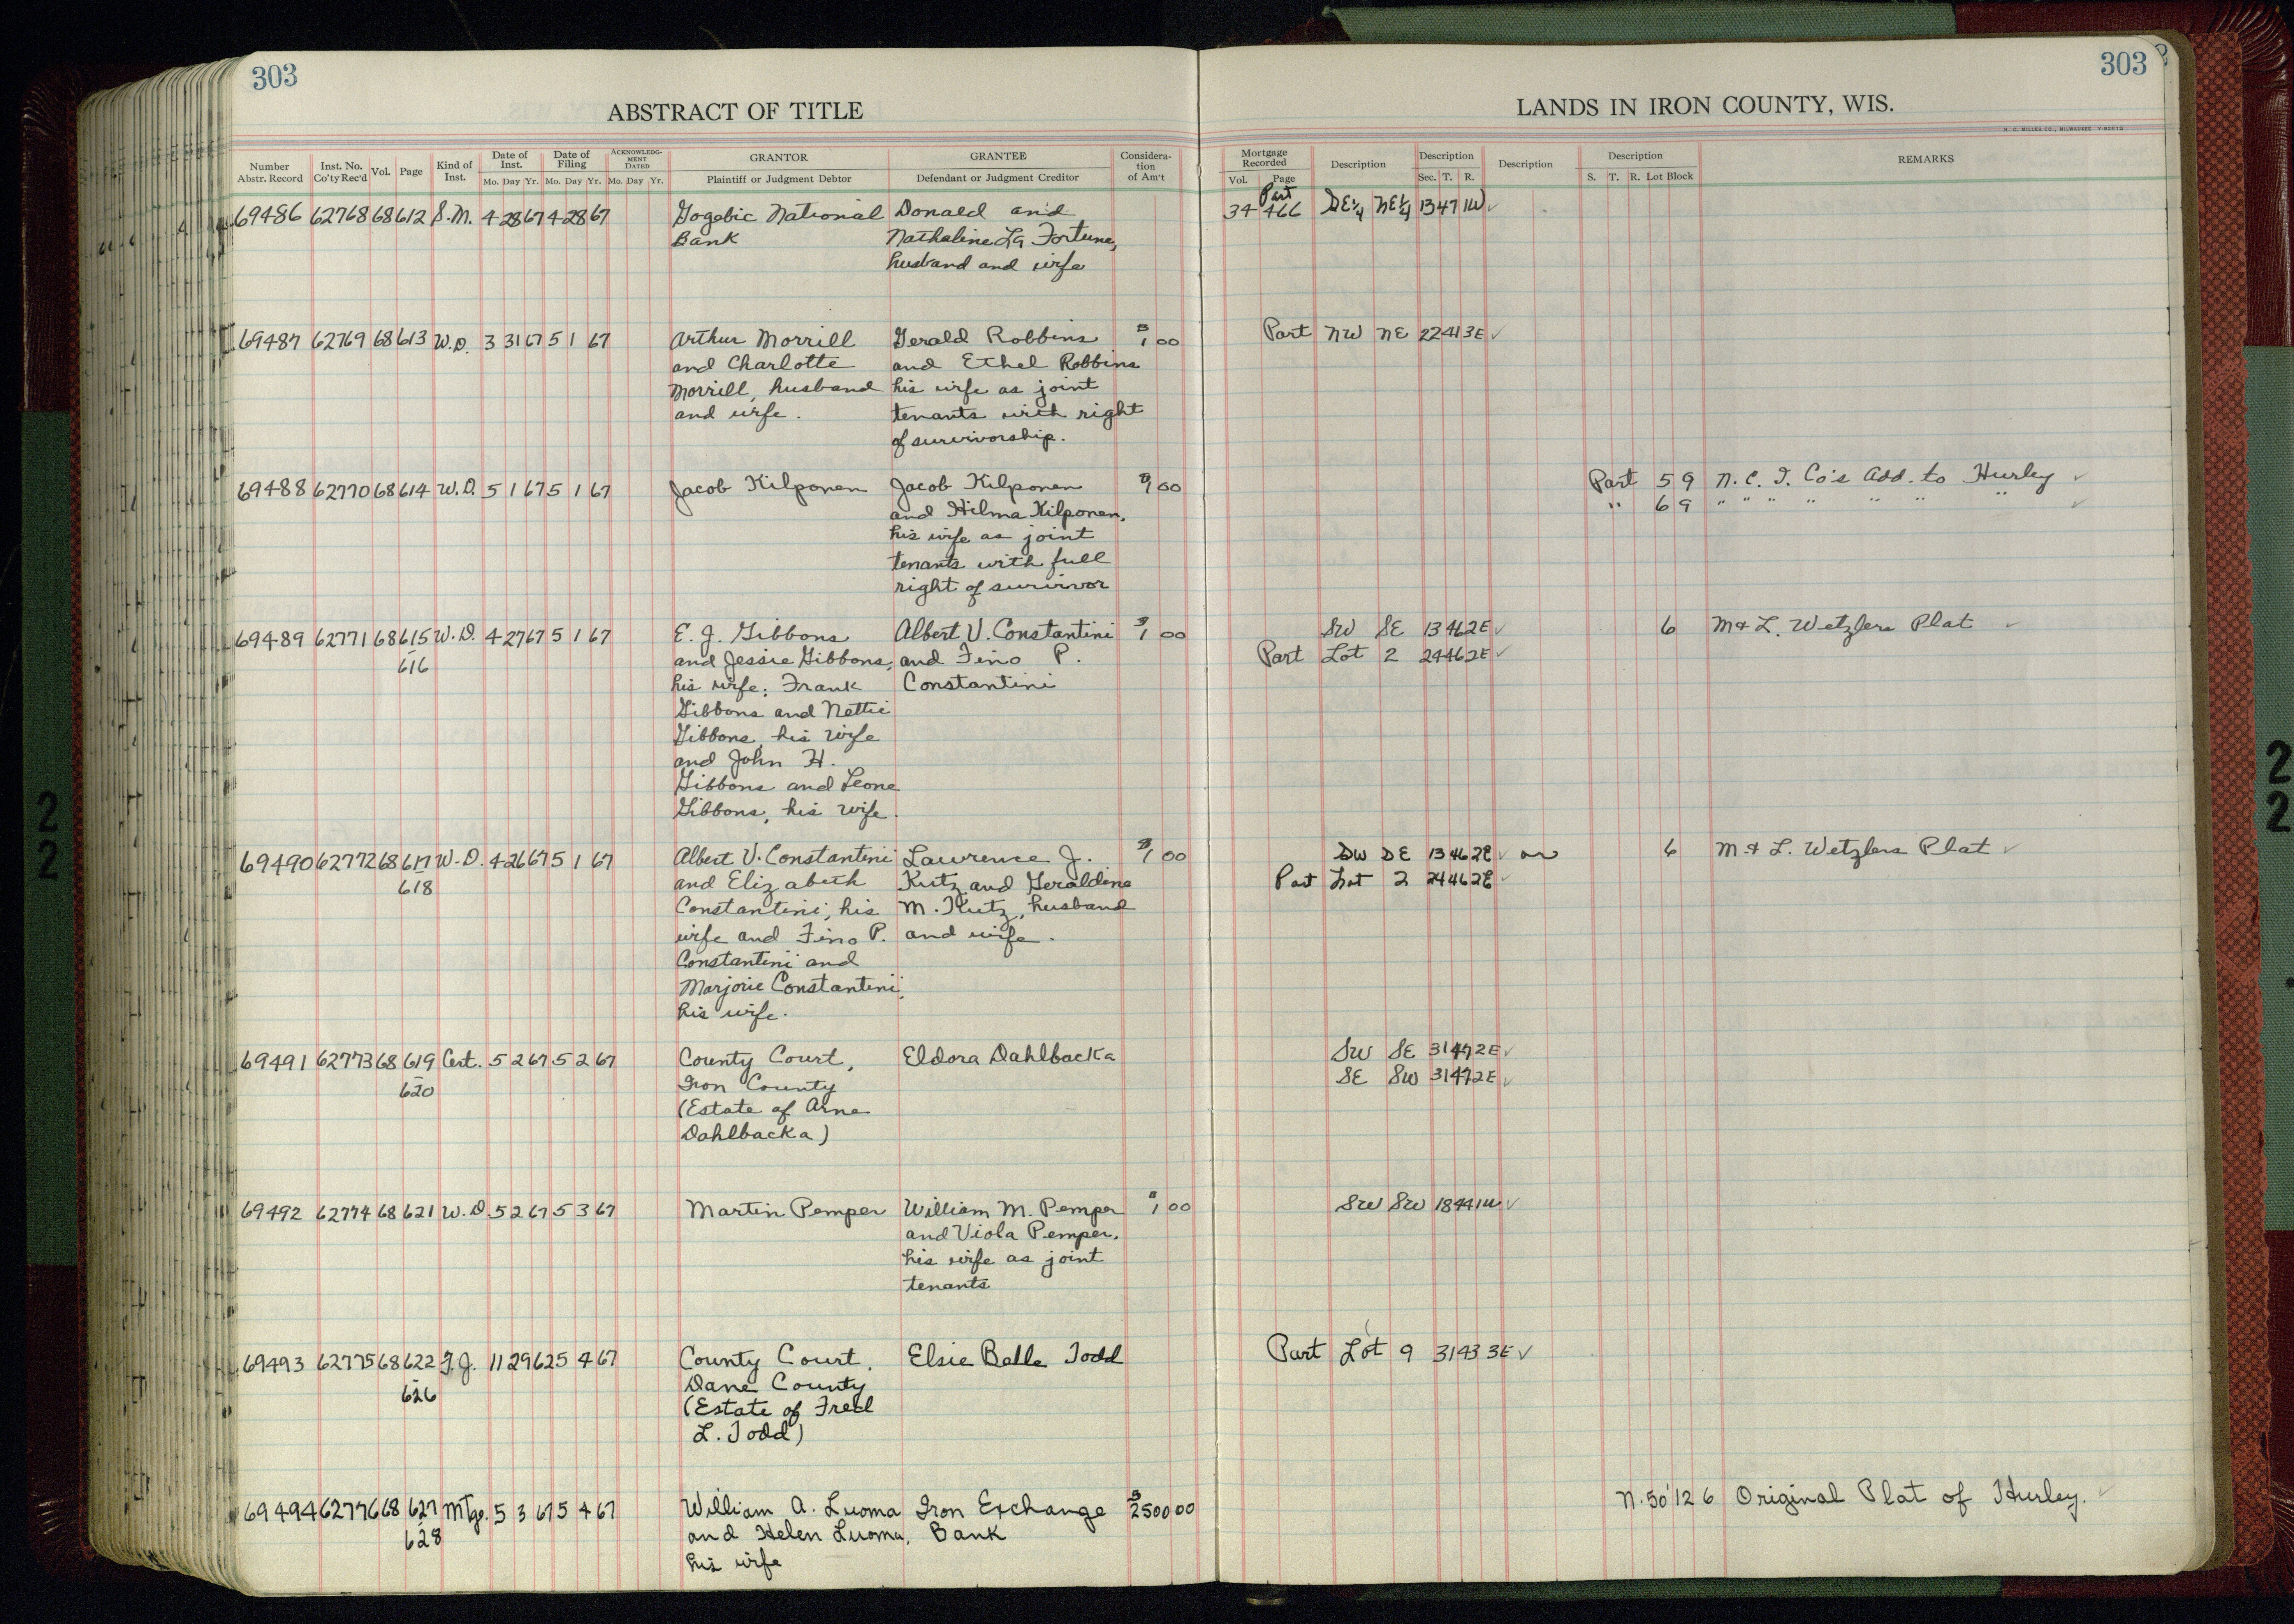 303
303
ABSTRACT OF TITLE
LANDS IN IRON COUNTY, WIS.
H. C. MILLER CO., MILWAUKEE
Number Abstr. Record | Inst. No. Co'ty Rec'd | Vol. | Page | Kind of Inst. | Date of Inst. Mo. Day Yr. | Date of Filing Mo. Day Yr. | ACKNOWLEDGMENT DATED Mo. Day Yr. | GRANTOR Plaintiff or Judgment Debtor | GRANTEE Defendant or Judgment Creditor | Consideration of Am't
Mortgage Recorded Vol. Page | Description | Description Sec. T. R. | Description | Description S. T. R. Lot Block | REMARKS
69486 62768 68 612 S.M. 4 28 67 4 28 67 Gogebic National Donald and 34 466 Part SE¼ NE¼ 13 47 1W ✓
Bank Nathaline La Fortune,
husband and wife
69487 62769 68 613 W.D. 3 31 67 5 1 67 Arthur Morrill Gerald Robbins $1 00 Part NW NE 22 41 3E ✓
and Charlotte and Ethel Robbins
Morrill, husband his wife as joint
and wife. tenants with right
of survivorship.
69488 62770 68 614 W.D. 5 1 67 5 1 67 Jacob Kilponen Jacob Kilponen $1 00 Part 5 9 N.C.I. Co's Add. to Hurley ✓
and Hilma Kilponen, " 6 9 " " " " " " " ✓
his wife as joint
tenants with full
right of survivor
69489 62771 68 615 W.D. 4 27 67 5 1 67 E. J. Gibbons Albert V. Constantini $1 00 SW SE 13 46 2E ✓ 6 M & L. Wetzlers Plat ✓
- 616 and Jessie Gibbons, and Fino P. Part Lot 2 24 46 2E ✓
his wife; Frank Constantini
Gibbons and Nettie
Gibbons, his wife
and John H.
Gibbons and Leone
Gibbons, his wife.
69490 62772 68 617 W.D. 4 26 67 5 1 67 Albert V. Constantini Lawrence J. $1 00 SW SE 13 46 2E ✓ or 6 M. & L. Wetzlers Plat ✓
- 618 and Elizabeth Kutz and Geraldine Part Lot 2 24 46 2E ✓
Constantini, his M. Kutz, husband
wife and Fino P. and wife.
Constantini and
Marjorie Constantini,
his wife.
69491 62773 68 619 Cert. 5 2 67 5 2 67 County Court, Eldora Dahlbacka SW SE 31 47 2E ✓
- 620 Iron County SE SW 31 47 2E ✓
(Estate of Arne
Dahlbacka)
69492 62774 68 621 W.D. 5 2 67 5 3 67 Martin Pemper William M. Pemper $1 00 SW SW 18 44 1W ✓
and Viola Pemper,
his wife as joint
tenants
69493 62775 68 622 F.J. 11 29 62 5 4 67 County Court, Elsie Belle Todd Part Lot 9 31 43 3E ✓
- 626 Dane County
(Estate of Fred
L. Todd)
69494 62776 68 627 Mtge. 5 3 67 5 4 67 William A. Luoma Iron Exchange $2500 00 N. 50' 12 6 Original Plat of Hurley. ✓
- 628 and Helen Luoma, Bank
his wife
2
2
2
2